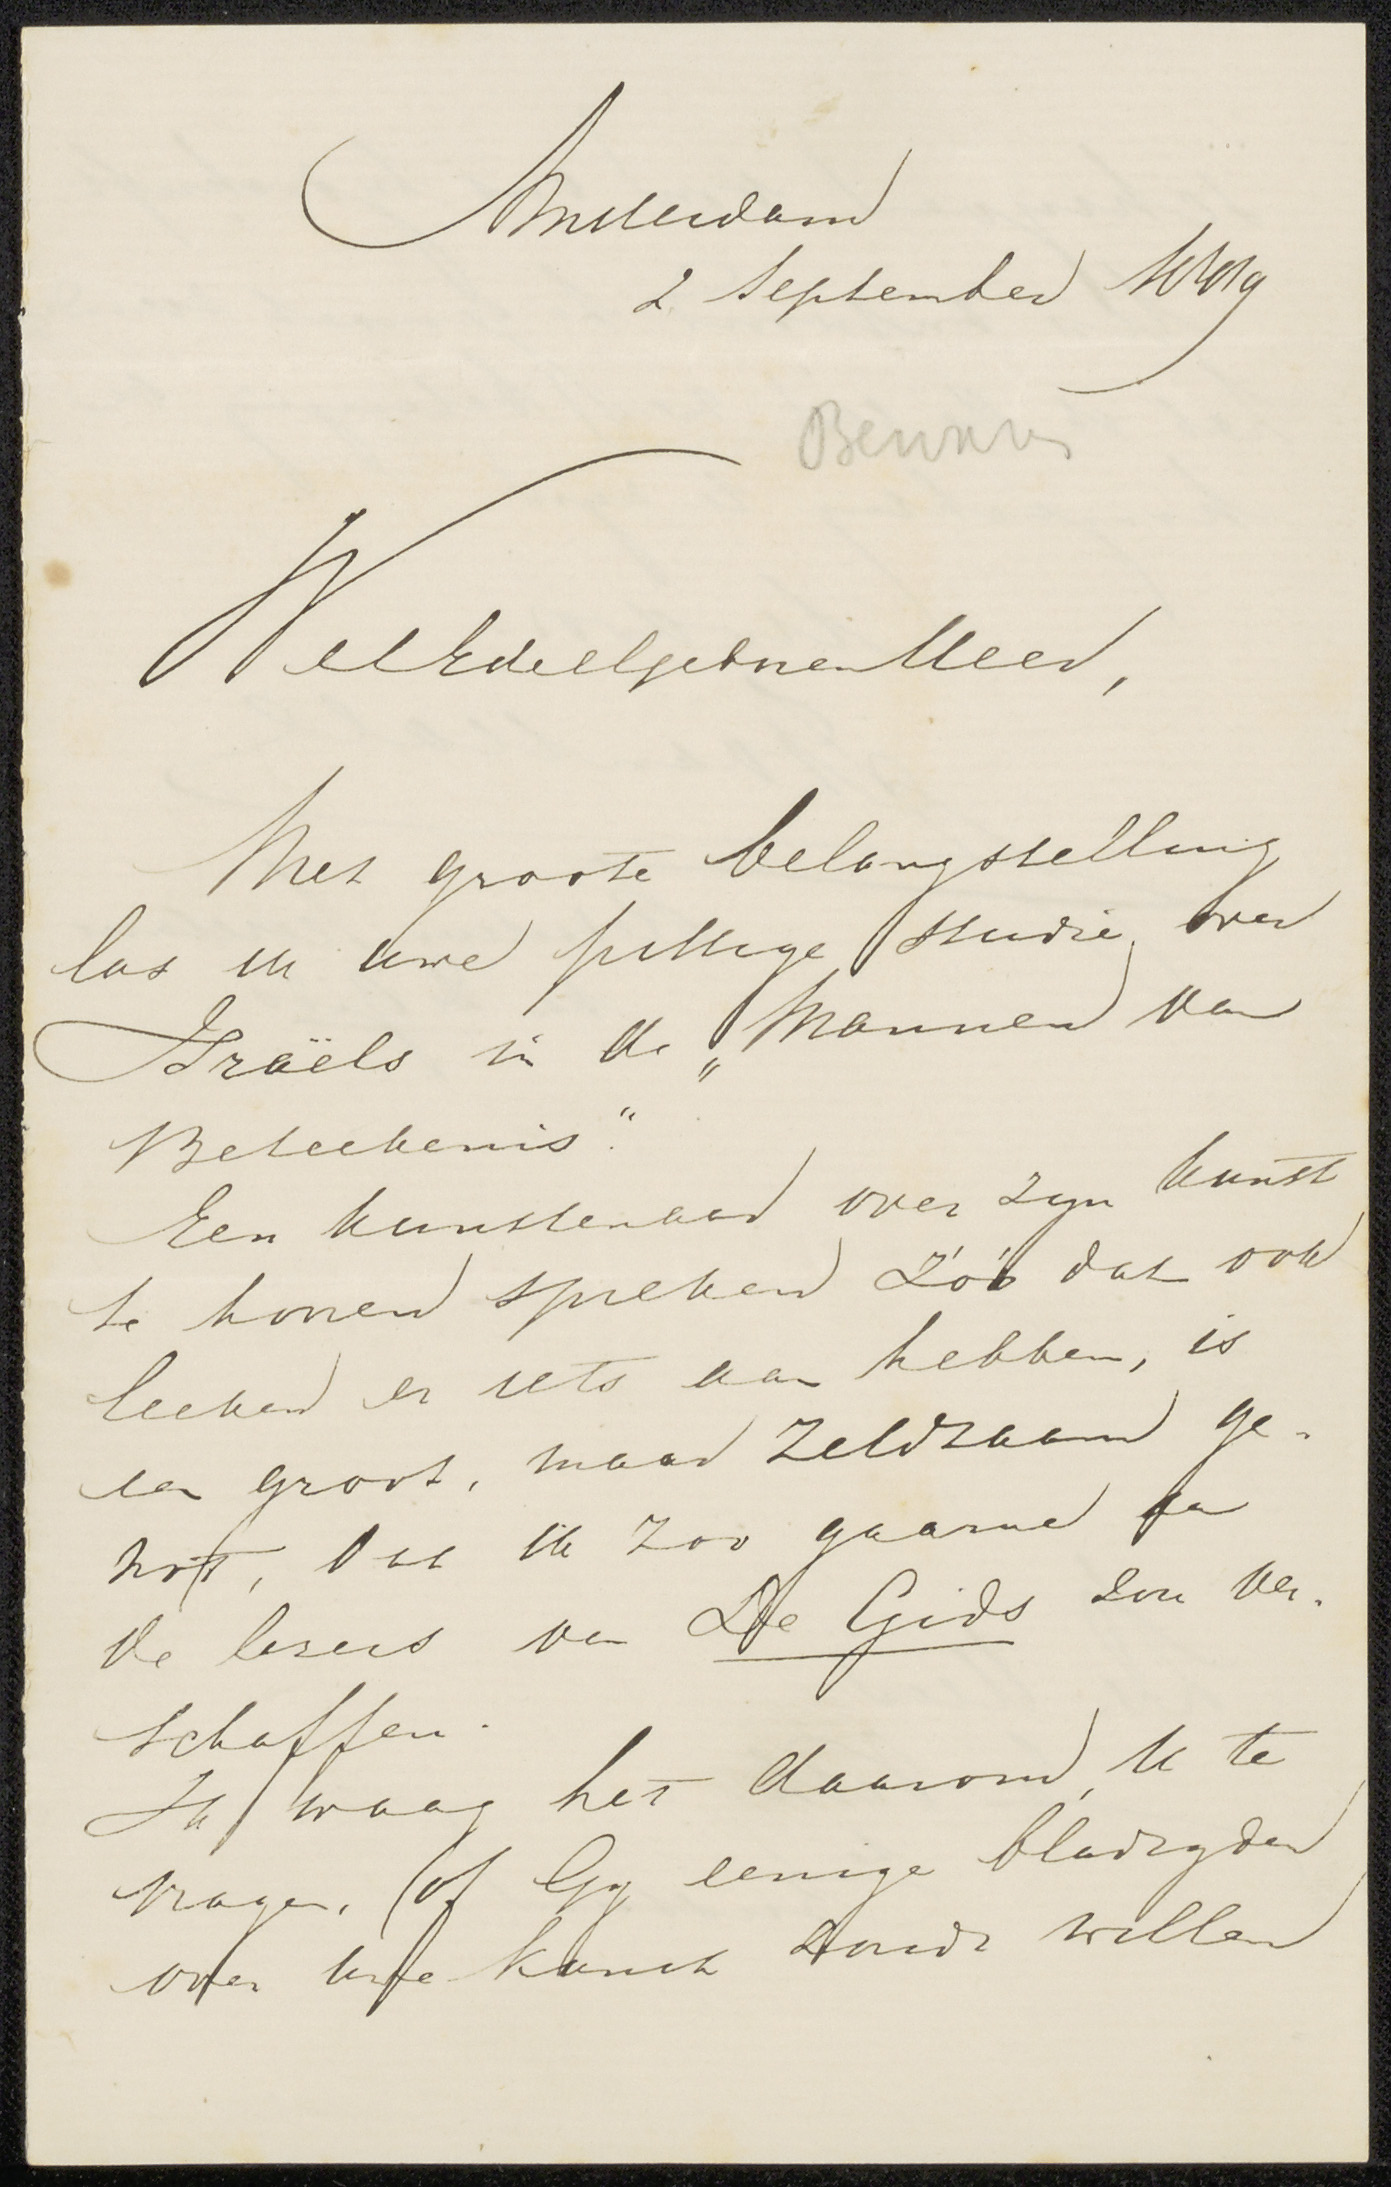 Amsterdam
2 September 1889
WelEdelgeboren Heer,
Met groote belangstelling
las ik uwe pittige studie over
Israëls in de „Mannen van
Beteekenis".
Een kunstenaar over zijn kunst
te hooren spreken zóó dat ook
leeken er iets aan hebben, is
een groot, maar zeldzaam ge-
not, dat ik zoo gaarne aan
de lezers van De Gids zou ver-
schaffen.
Ik waag het daarom, U te
vragen, of Gij eenige bladzijden
over uwe kunst zoudt willen